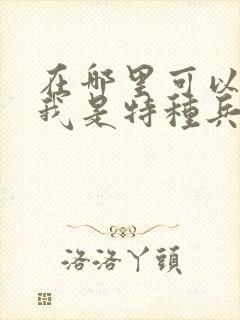 在哪里可以
我是特種兵
洛洛丫頭